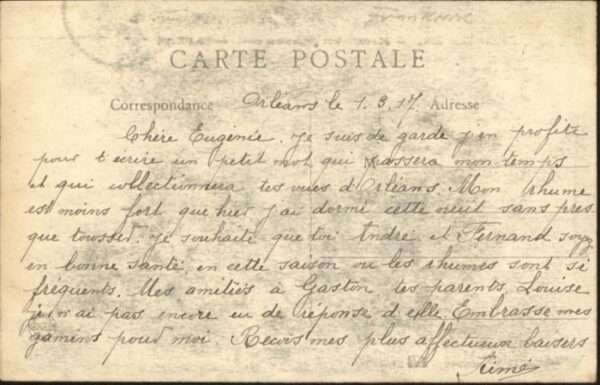 CARTE POSTALE
Correspondance Orléans le 1.3.17. Adresse
Chère Eugénie. Je suis de garde j'en profite
pour t'écrire un petit mot qui passera mon temps
et qui collectionnera tes vues d'Orléans. Mon rhume
est moins fort que hier j'ai dormi cette nuit sans pres
que tousser. Je souhaite que toi André et Fernand soyez
en bonne santé, en cette saison ou les rhumes sont si
fréquents. Mes amitiés à Gaston tes parents, Louise
je n'ai pas encore eu de réponse d'elle Embrasse mes
gamins pour moi. Reçois mes plus affectueux baisers
Aimé